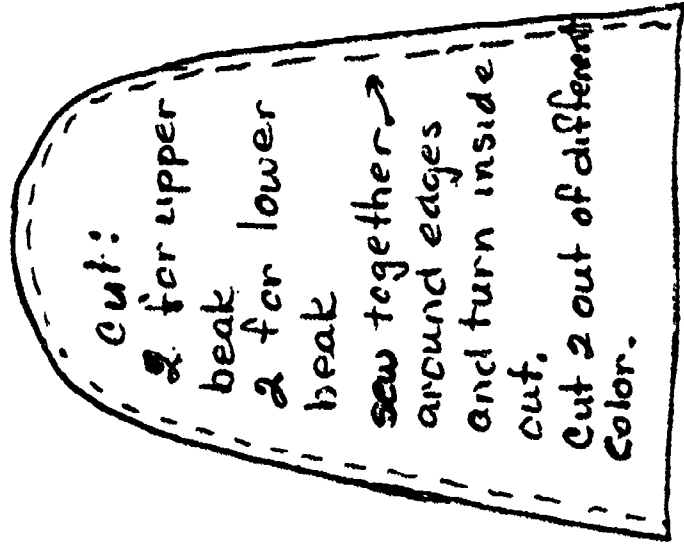 Cut:
2 for upper
beak
2 for lower
beak
sew together
around edges
and turn inside
out.
Cut 2 out of different
color.